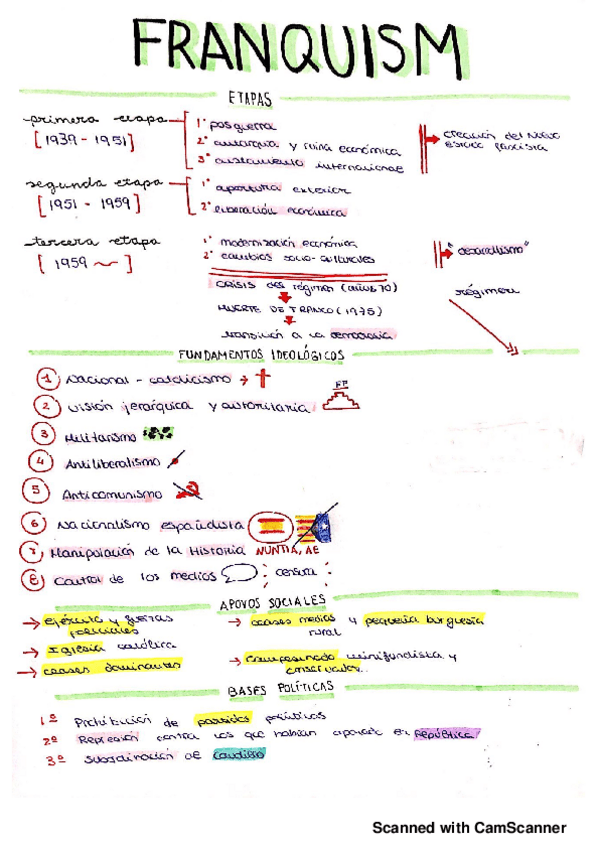 FRANQUISM
ETAPAS
primera etapa
[1939 - 1951]
1º posguerra
2º autarquía y ruina económica
3º aislamiento internacional
creación del Nuevo
estado fascista
segunda etapa
[1951 - 1959]
1º apertura exterior
2º liberación económica
tercera etapa
[1959 ~ ]
1º modernización económica
2º cambios socio-culturales
"desarrollismo"
crisis del régimen (años 70)
MUERTE DE FRANCO (1975)
transición a la democracia
régimen
FUNDAMENTOS IDEOLÓGICOS
1 Nacional - catolicismo →
2 visión jerárquica y autoritaria
3 Militarismo
4 Antiliberalismo
5 Anticomunismo
6 Nacionalismo españolista
7 Manipulación de la Historia NUNTIA, AE
8 Control de los medios censura
APOYOS SOCIALES
→ ejército y fuerzas
policiales
→ Iglesia católica
→ clases dominantes
→ clases medias y pequeña burguesía
rural
→ campesinado minifundista y
conservador...
BASES POLÍTICAS
1º Prohibición de partidos políticos
2º Represión contra los que habían apoyado el República
3º subordinación al caudillo
Scanned with CamScanner